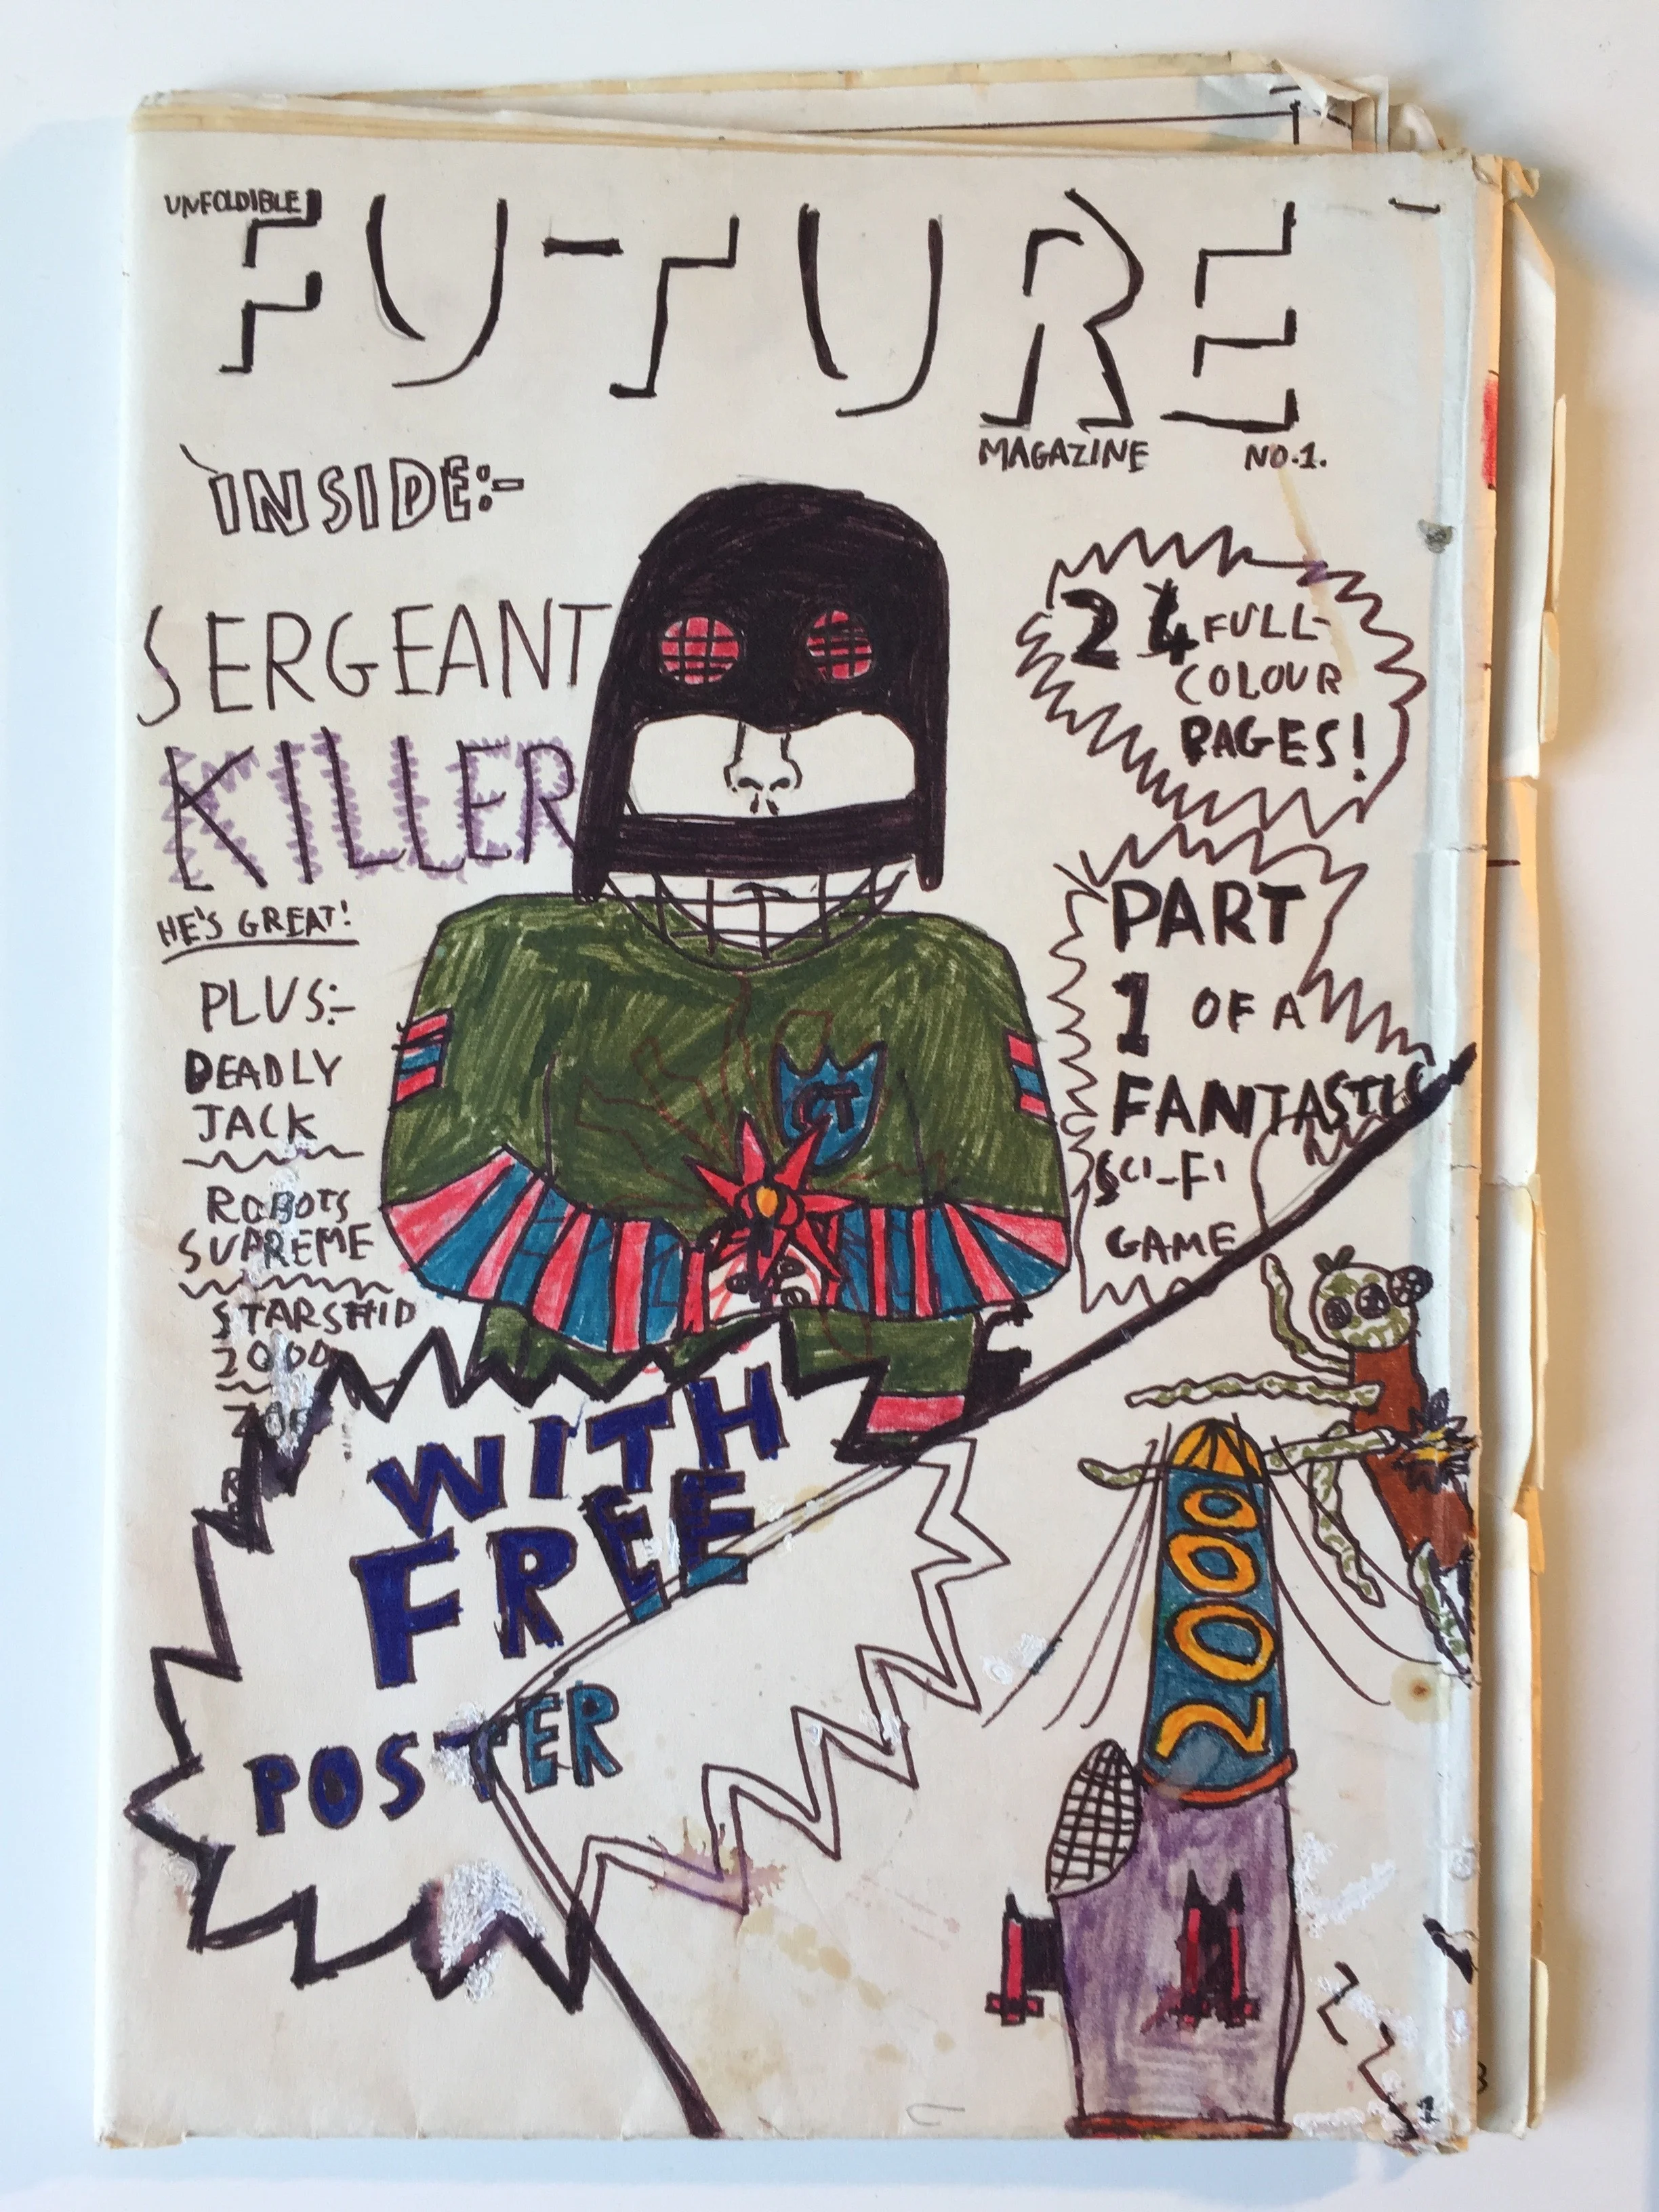 UNFOLDIBLE
FUTURE
MAGAZINE NO.1.
INSIDE:-
SERGEANT
KILLER
HE'S GREAT!
PLUS:-
DEADLY
JACK
ROBOTS
SUPREME
STARSHIP
2000
24 FULL-
COLOUR
PAGES!
PART
1 OF A
FANTASTIC
SCI-FI
GAME
CT
WITH
FREE
POSTER
2000
1
3